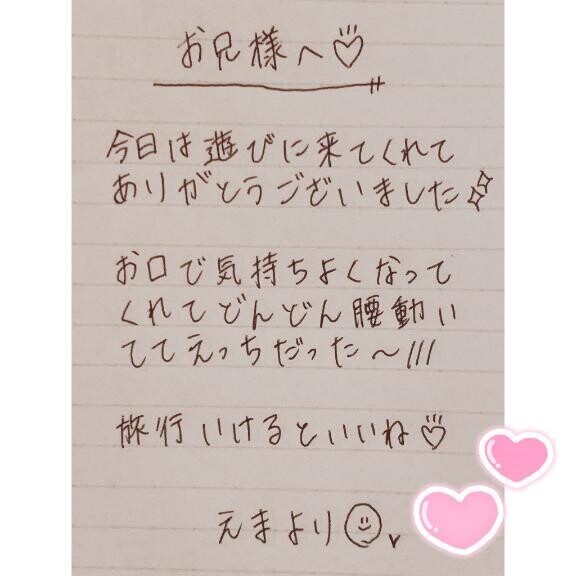 お兄様へ♡
今日は遊びに来てくれて
ありがとうございました
お口で気持ちよくなって
くれてどんどん腰動い
ててえっちだった〜///
旅行いけるといいね♡
えまより